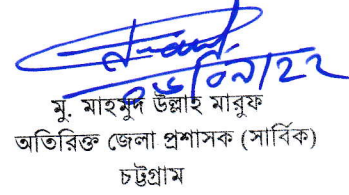 ০৬/০৭/২২
মু. মাহমুদ উল্লাহ মারুফ
অতিরিক্ত জেলা প্রশাসক (সার্বিক)
চট্টগ্রাম